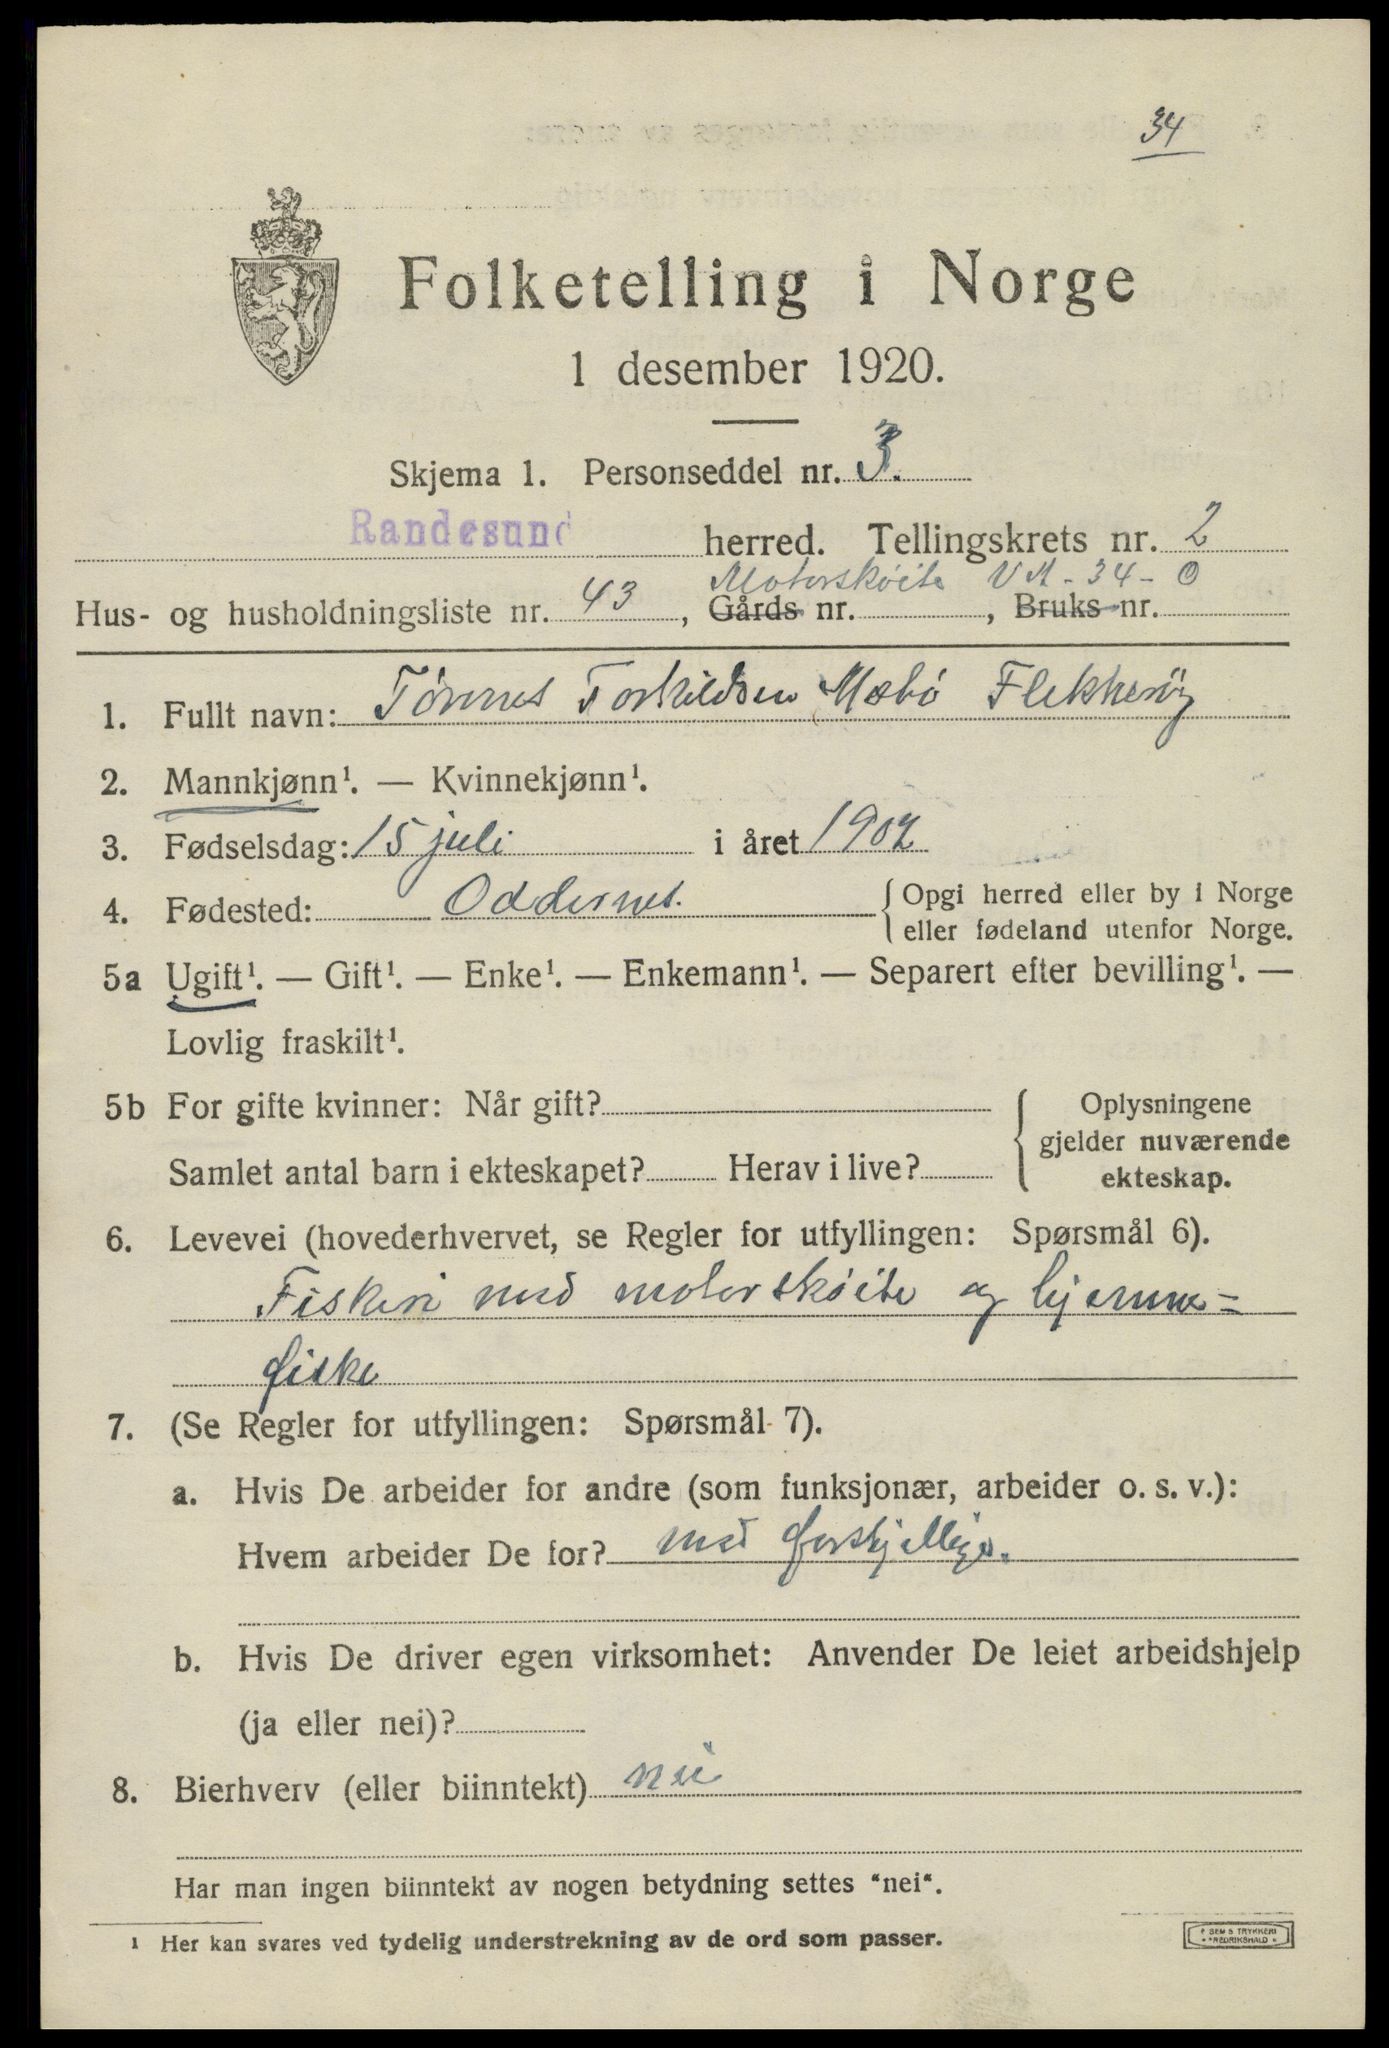 34
Folketelling i Norge
1 desember 1920.
Skjema 1. Personseddel nr. 3.
Randesund herred. Tellingskrets nr. 2
Motorskøite VA-34-O
Hus- og husholdningsliste nr. 43, Gårds nr. , Bruks nr.
1. Fullt navn: Tønnes Torkildsen Mæbø Flekkerøy
2. Mannkjønn¹. — Kvinnekjønn¹.
3. Fødselsdag: 15 juli i året 1902
4. Fødested: Oddernes. { Opgi herred eller by i Norge
eller fødeland utenfor Norge.
5a Ugift¹. — Gift¹. — Enke¹. — Enkemann¹. — Separert efter bevilling¹. —
Lovlig fraskilt¹.
5b For gifte kvinner: Når gift? { Oplysningene
gjelder nuværende
Samlet antal barn i ekteskapet? Herav i live?
ekteskap.
6. Levevei (hovederhvervet, se Regler for utfyllingen: Spørsmål 6).
Fiskeri med motorskøite og hjemme=
fiske
7. (Se Regler for utfyllingen: Spørsmål 7).
a. Hvis De arbeider for andre (som funksjonær, arbeider o. s. v.):
Hvem arbeider De for? med forskjellige.
b. Hvis De driver egen virksomhet: Anvender De leiet arbeidshjelp
(ja eller nei)?
8. Bierhverv (eller biinntekt) nei
Har man ingen biinntekt av nogen betydning settes "nei".
¹ Her kan svares ved tydelig understrekning av de ord som passer.
SEM'S TRYKKERI
FREDRIKSHALD